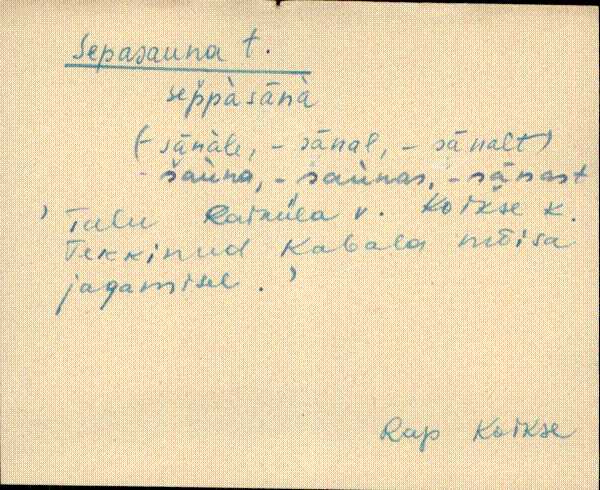 Sepasauna t.
sèppàsānà
(-sānàle, -sānal, -sānalt)
-saùna, -saùnas, -sānast
' Talu Raiküla v. Koikse k.
Tekkinud Kabala mõisa
jagamisel. '
Rap Koikse